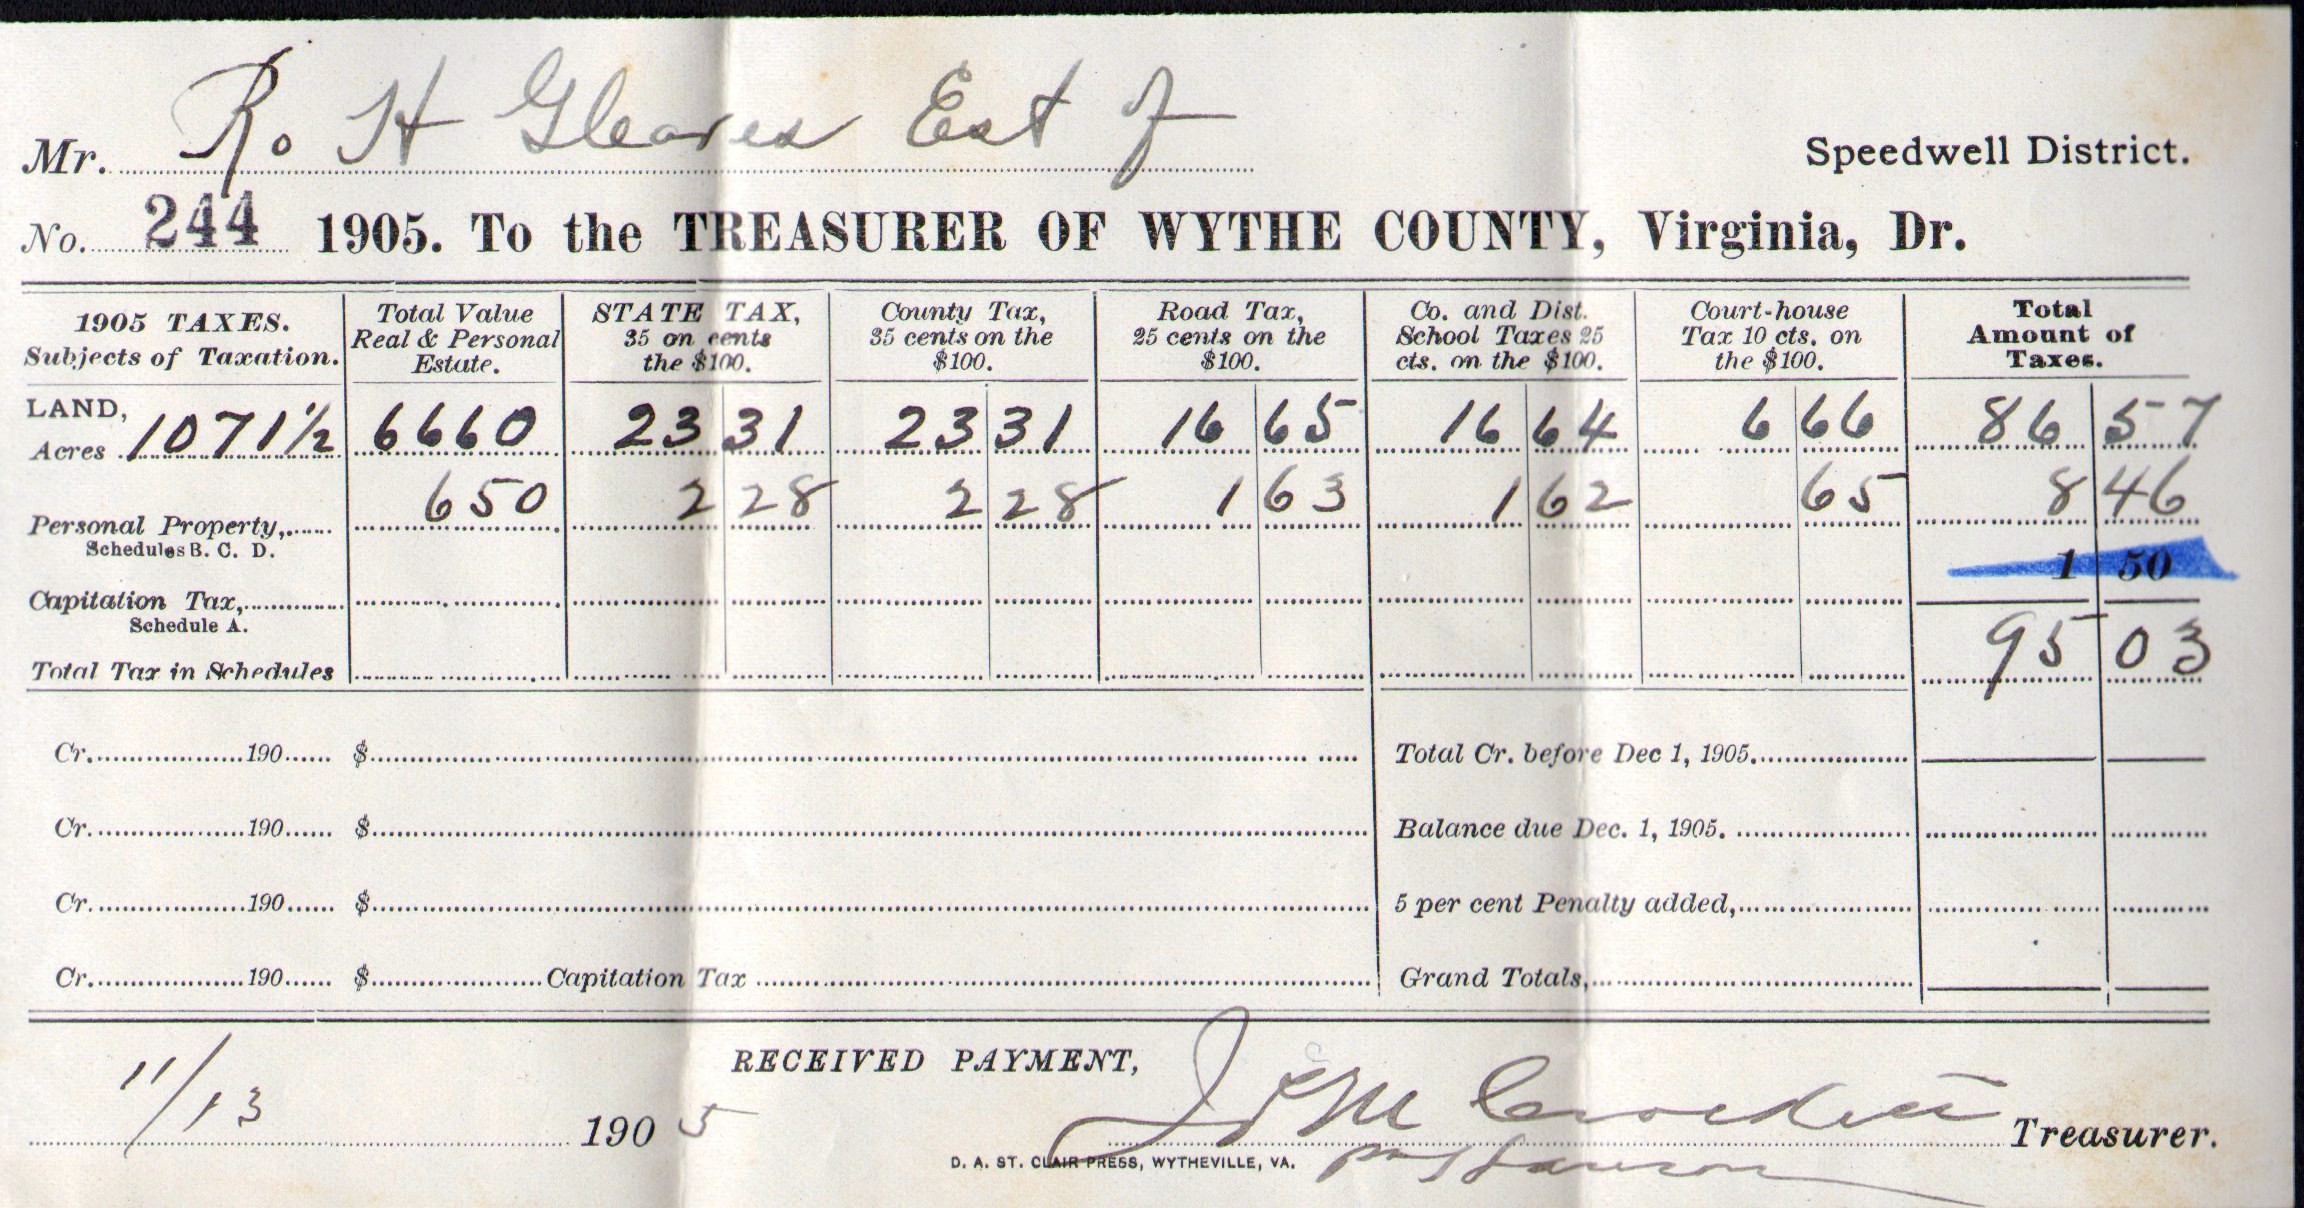 Mr. Ro H Gleaves Est of
Speedwell District.
No. 244 1905. To the TREASURER OF WYTHE COUNTY, Virginia, Dr.
1905 TAXES. Subjects of Taxation. Total Value Real & Personal Estate. STATE TAX, 35 on cents the $100. County Tax, 35 cents on the $100. Road Tax, 25 cents on the $100. Co. and Dist. School Taxes 25 cts. on the $100. Court-house Tax 10 cts. on the $100. Total Amount of Taxes.
LAND, Acres 1071½ 6660 23 31 23 31 16 65 16 64 6 66 86 57
Personal Property, 650 2 28 2 28 1 63 1 62 65 8 46
Schedules B. C. D.
1 50
Capitation Tax,
Schedule A.
Total Tax in Schedules 95 03
Cr. 190 $ Total Cr. before Dec 1, 1905.
Cr. 190 $ Balance due Dec. 1, 1905.
Cr. 190 $ 5 per cent Penalty added,
Cr. 190 $ Capitation Tax Grand Totals,
RECEIVED PAYMENT,
11/13 1905 Crockett Treasurer.
D. A. ST. CLAIR PRESS, WYTHEVILLE, VA.